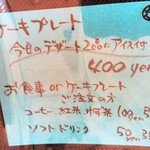 ケーキプレート
今日のデザート2種にアイス付
400yen
お食事orケーキプレート
ご注文の方
コーヒー、紅茶、
100yen
ソフトドリンク
50yen